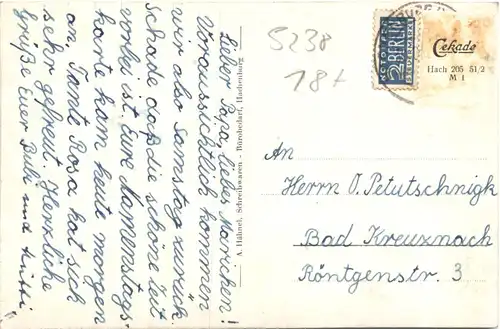 Lieber Papa, liebes Marichen!
Voraussichtlich kommen
wir also Samstag zurück.
Schade, daß die schöne Zeit
vorbei ist. Eure Namenstags-
karte kam heute morgen
an. Tante Rosa hat sich
sehr gefreut. Herzliche
Grüße Euer Bub und Mutti.
A. Hähnel, Schreibwaren - Bürobedarf, Hachenburg
5238
18+
NOTOPFER
2 BERLIN
STEUERMARKE
Cekade
Hach 205 51/2
M 1
An
Herrn O. Petutschnigh
Bad Kreuznach
Röntgenstr. 3